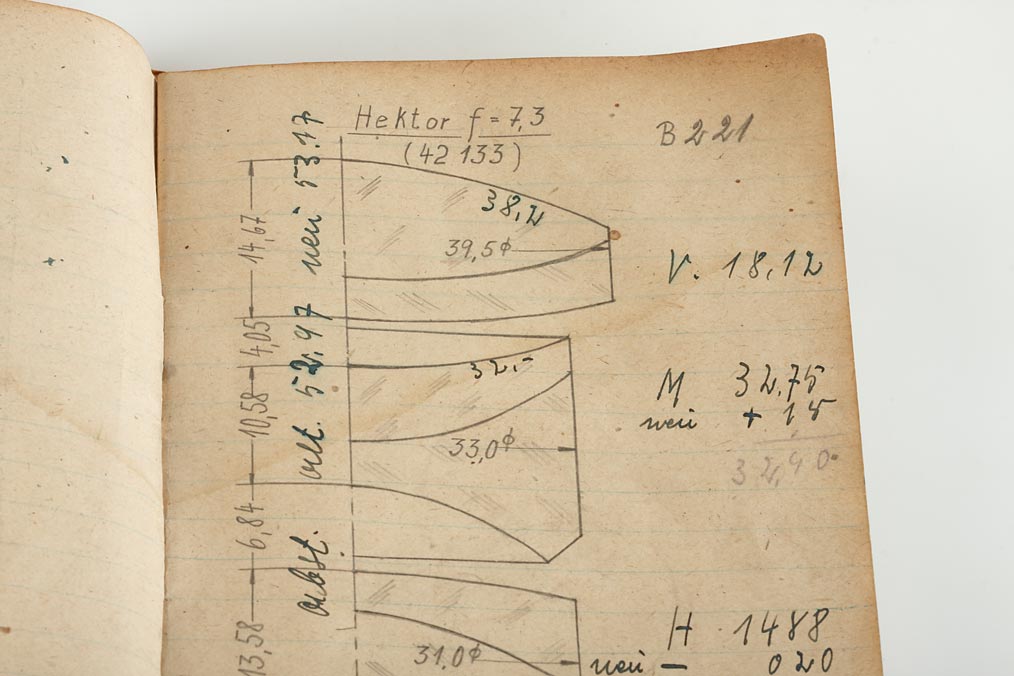 Hektor f = 7,3
(42 133)
B 221
38,2
39,5ϕ
V. 18,12
32,-
33,0ϕ
M 32,75
neu + 15
32,90
31,0ϕ
H 1488
neu — 020
14,67
4,05
10,58
6,84
13,58
abst. alt. 52.97 neu 53.17